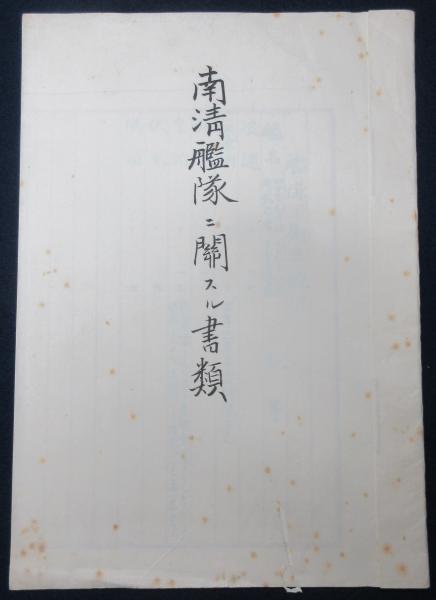 南淸艦隊ニ關スル書類